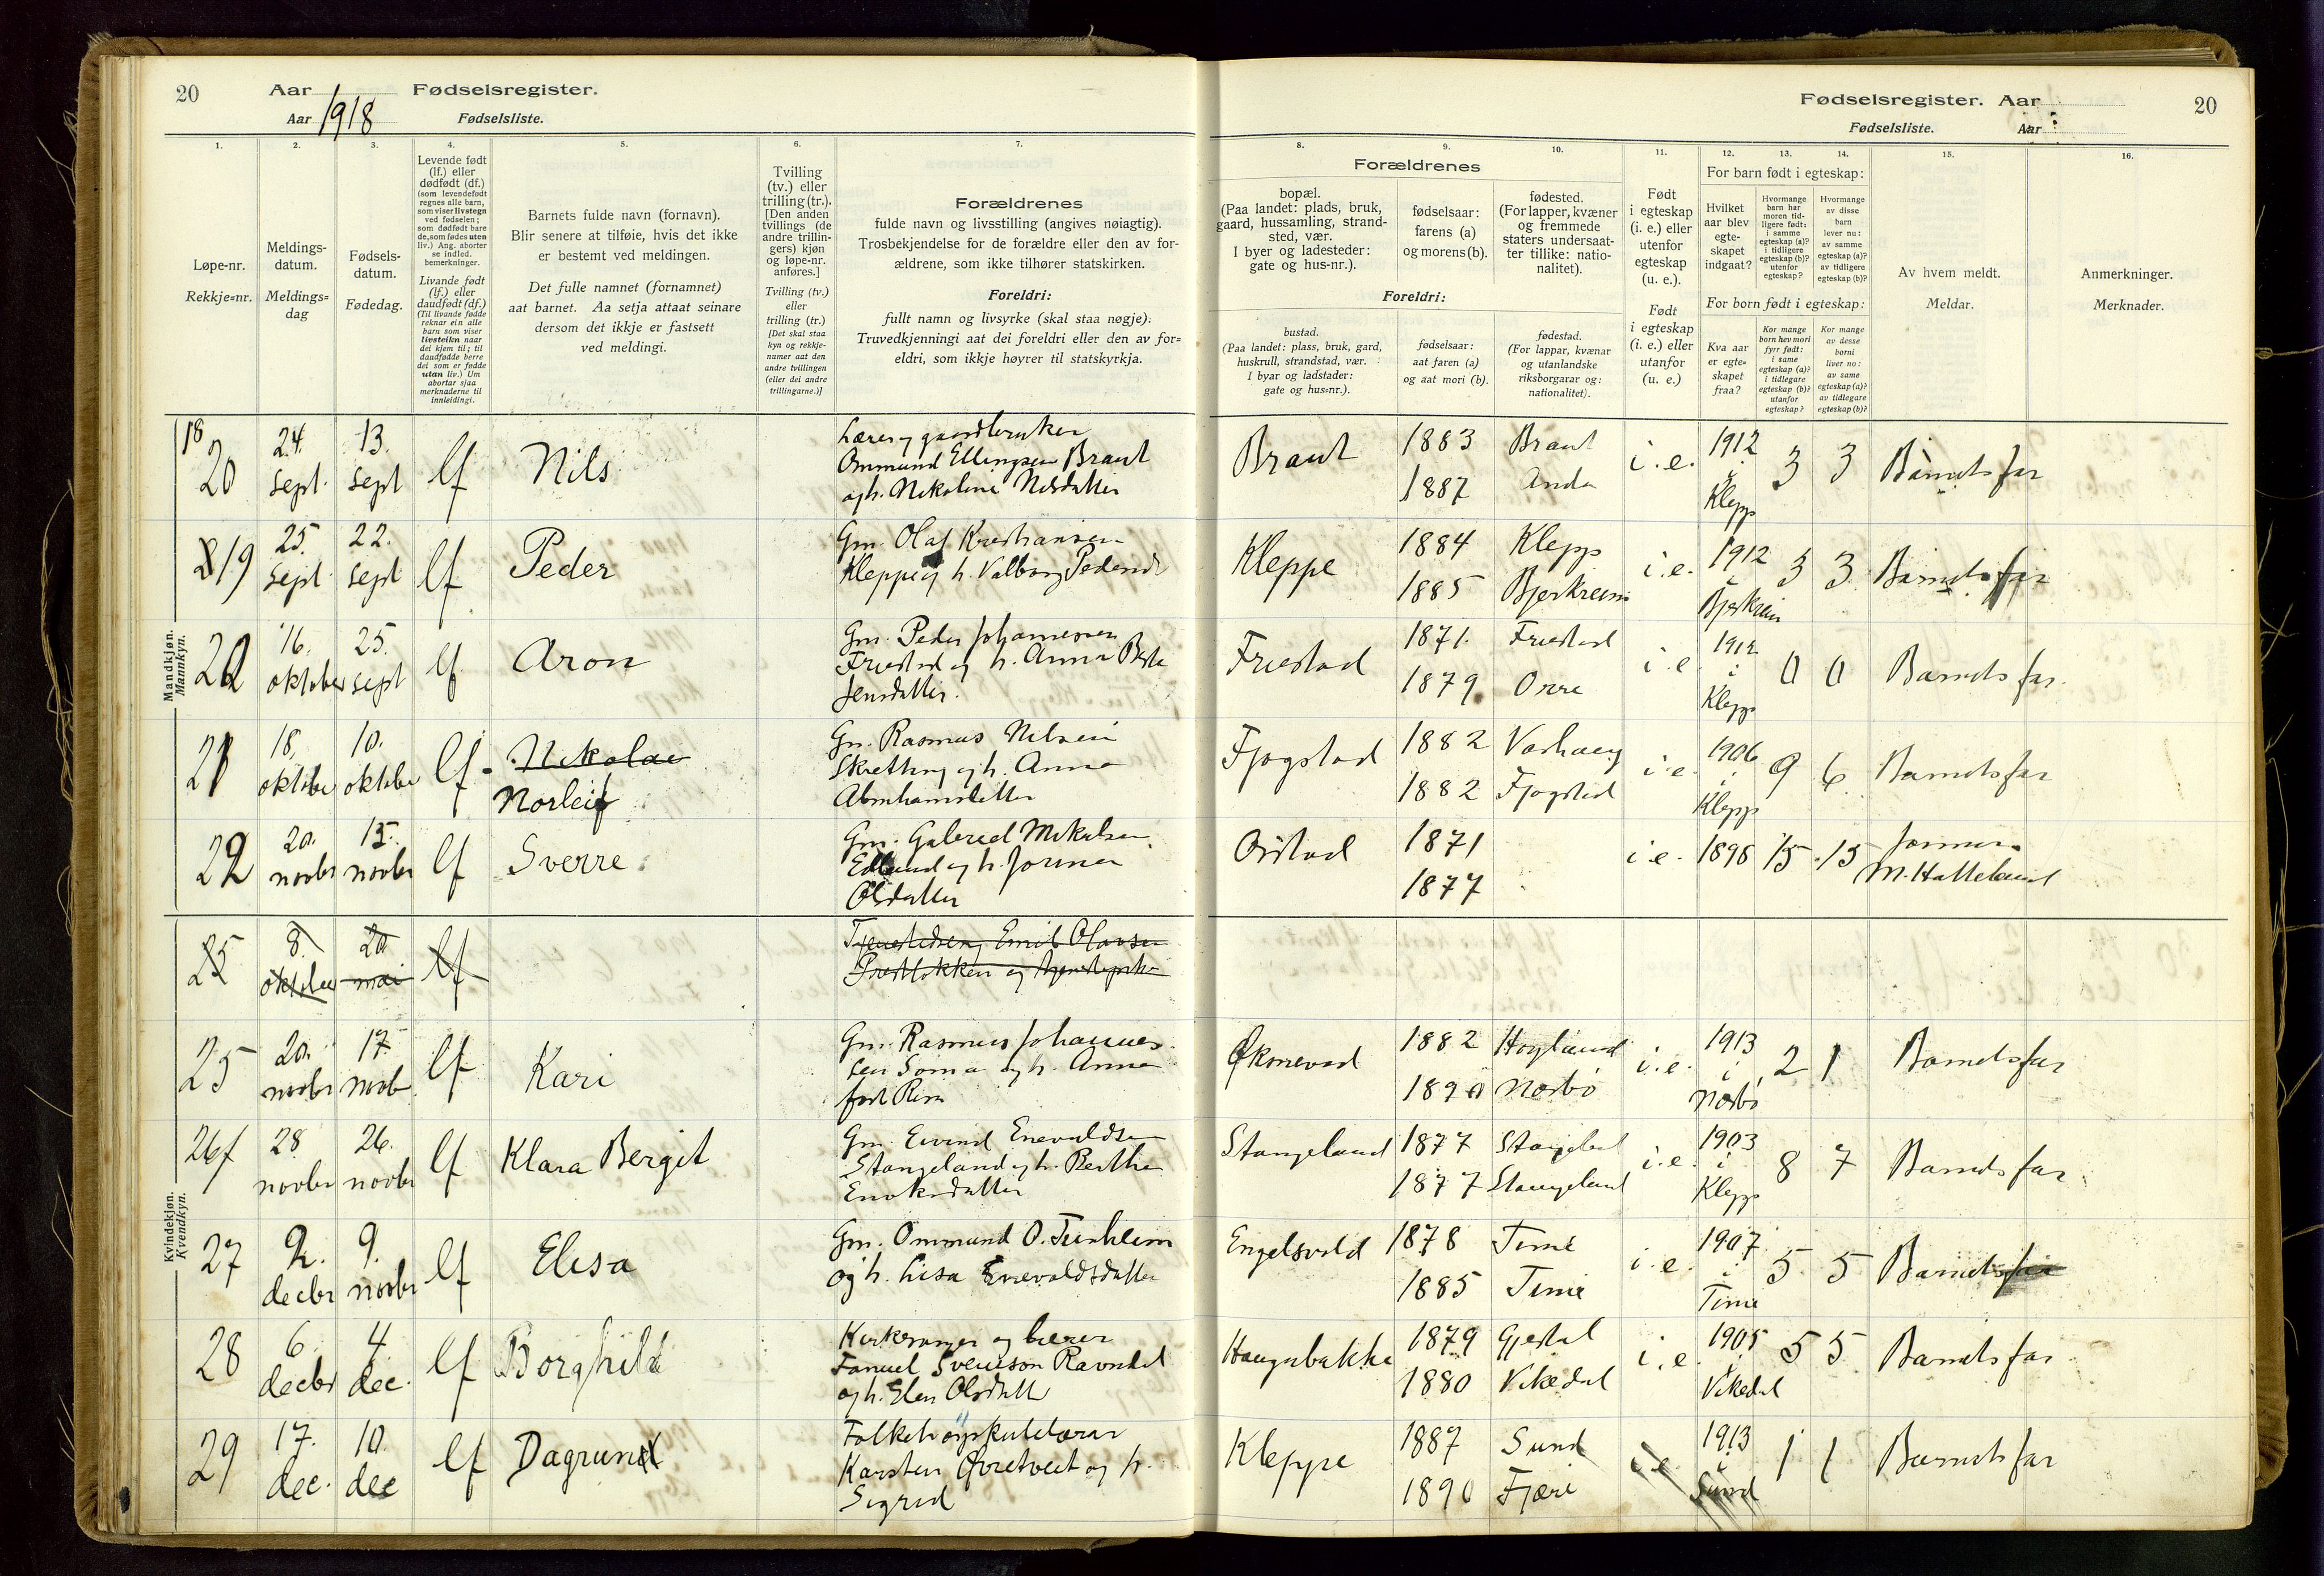 20 Aar Fødselsregister.
Aar 1918 Fødselsliste.
Fødselsregister. Aar 20
Fødselsliste. Aar
1. 2. 3. 4. 5. 6. 7. 8. 9. 10. 11. 12. 13. 14. 15. 16.
Løpe-nr.
Rekkje=nr.
Meldings-
datum.
Meldings=
dag
Fødsels-
datum.
Fødedag.
Levende født
(lf.) eller
dødfødt (df.)
(som levendefødt
regnes alle barn,
som viser livstegn
ved fødselen;
som dødfødt bare
de, som fødes uten
liv.) Ang. aborter
se indled.
bemerkninger.
Livande født
(lf.) eller
daudfødt (df.)
(Til livande fødde
reknar ein alle
barn som viser
livsteikn naar
dei kjem til; til
daudfødde berre
dei som er fødde
utan liv.) Um
abortar sjaa
merknaderne til
innleidingi.
Barnets fulde navn (fornavn).
Blir senere at tilføie, hvis det ikke
er bestemt ved meldingen.
Det fulle namnet (fornamnet)
aat barnet. Aa setja attaat seinare
dersom det ikkje er fastsett
ved meldingi.
Tvilling
(tv.) eller
trilling (tr.).
[Den anden
tvillings (de
andre trillin-
gers) kjøn
og løpe-nr.
anføres.]
Tvilling (tv.)
eller
trilling (tr.)
[Det skal staa
kyn og rekkje-
numer aat den
andre tvillingen
(eller dei andre
trillingarne.)]
Forældrenes
fulde navn og livsstilling (angives nøiagtig).
Trosbekjendelse for de forældre eller den av for-
ældrene, som ikke tilhører statskirken.
Foreldri:
fullt namn og livsyrke (skal staa nøgje).
Truvedkjenningi aat dei foreldri eller den av for=
eldri, som ikkje høyrer til statskyrkja.
Forældrenes
bopæl.
(Paa landet: plads, bruk,
gaard, hussamling, strand-
sted, vær.
I byer og ladesteder:
gate og hus-nr.).
fødselsaar:
farens (a)
og morens (b).
fødested.
(For lapper, kvæner
og fremmede
staters undersaat-
ter tillike: natio-
nalitet).
Foreldri:
bustad.
(Paa landet: plass, bruk, gard,
huskrull, strandstad, vær.
I byar og ladstader:
gate og hus=nr.).
fødselsaar:
aat faren (a)
og aat mori (b).
fødestad.
(For lappar, kvænar
og utanlandske
riksborgarar og:
nationalitet).
Født
i egteskap
(i. e.) eller
utenfor
egteskap
(u. e.).
Født
i egteskap
(i. e.) eller
utanfor
(u. e.)
For barn født i egteskap:
Hvilket
aar blev
egte-
skapet
indgaat?
Hvormange
barn har
moren tid-
ligere født:
i samme
egteskap (a)?
i tidligere
egteskap (b)?
utenfor
egteskap?
Hvormange
av disse
barn
lever nu:
av samme
egteskap (a)?
av tidligere
egteskap (b)?
For born født i egteskap:
Kva aar
er egte-
skapet
fraa?
Kor mange
born hev mori
fyrr født:
i same
egteskap (a)?
i tidlegare
egteskap (b)?
utanfor
egteskap?
Kor mange
av desse
borni
liver no:
av same
egteskap (a)?
av tidlegare
egteskap (b)?
Av hvem meldt.
Meldar.
Anmerkninger.
Merknader.
Mandkjøn.
Mannkyn.
18 20 24. sept. 13. sept lf Nils
Lærer og gaardbruker
Ommund Ellingsen Braut
og h. Nikoline Nilsdatter
Braut 1883 1887 Braut Anda i. e. 1912 i Klepp 3 3 Barnets far
19 25. sept 22. sept lf Peder
Gm. Olaf Kristiansen
Kleppe og h. Valborg Pedersd
Kleppe 1884 1885 Klepp Bjerkreim i. e. 1912 i Bjerkreim 3 3 Barnets far
20 16. oktober 25. sept lf Aron
Gm. Peder Johannesen
Friestad og h. Anna
Jensdatter.
Friestad 1871. 1879. Friestad Orre i. e. 1912 i Klepp 0 0 Barnets far.
21 18. oktober 10. oktober lf Nikolae Norleif
Gm. Rasmus Nilsen
Skretting og h. Anna
Abrahamsdatter
Fjogstad 1882 1882 Varhaug Fjogstad i. e. 1906 i Klepp 9 6 Barnets far
22 20. novbr 15. novbr lf Sverre
Gm. Gabriel Mikalsen
og h. Jorina
Olsdatter
Orstad 1871 1877 i e. 1898 15 15
M. Hatteland
Kvindekjøn.
Kvendkyn.
25 8. oktober 20 mai lf
Emil Olavsen
25 20. novbr 17. novb lf Kari
Gm. Rasmus Johannes-
sen Soma og h. Anna
født
Øksnevad 1882 1890 Høyland Nærbø i. e. 1913 i Nærbø 2 1 Barnets far
26 28 novbr 26. novbr lf Klara Bergit
Gm. Eivind Enevaldsen
Stangeland og h. Berthe
Enoksdatter
Stangeland 1877 1877 Stangeland Stangeland i. e. 1903 i Klepp 8 7 Barnets far
27 2. decbr 9. novbr lf Elisa
Gm. Ommund O. Tunheim
og h. Lisa Enevaldsdatter
Engelsvold 1878 1885 Time Time i. e. 1907 i Time 5 5 Barnets far
28 6. decbr 4 dec. lf Borghild
Kirkesanger og lærer
Fanuel Svenson Ravndal
og h. Elen Olsdatt
Haugabakka 1879 1880 Gjestal Vikedal i. e 1905 i Vikedal 5 5 Barnets far
29 17. dec. 10. dec lf Dagrun
Folkehøgskulelærar
Karsten Øvretveit og h.
Sigrid
Kleppe 1887 1890 Sund Fjære i e 1913 i Sund 1 1 Barnets far